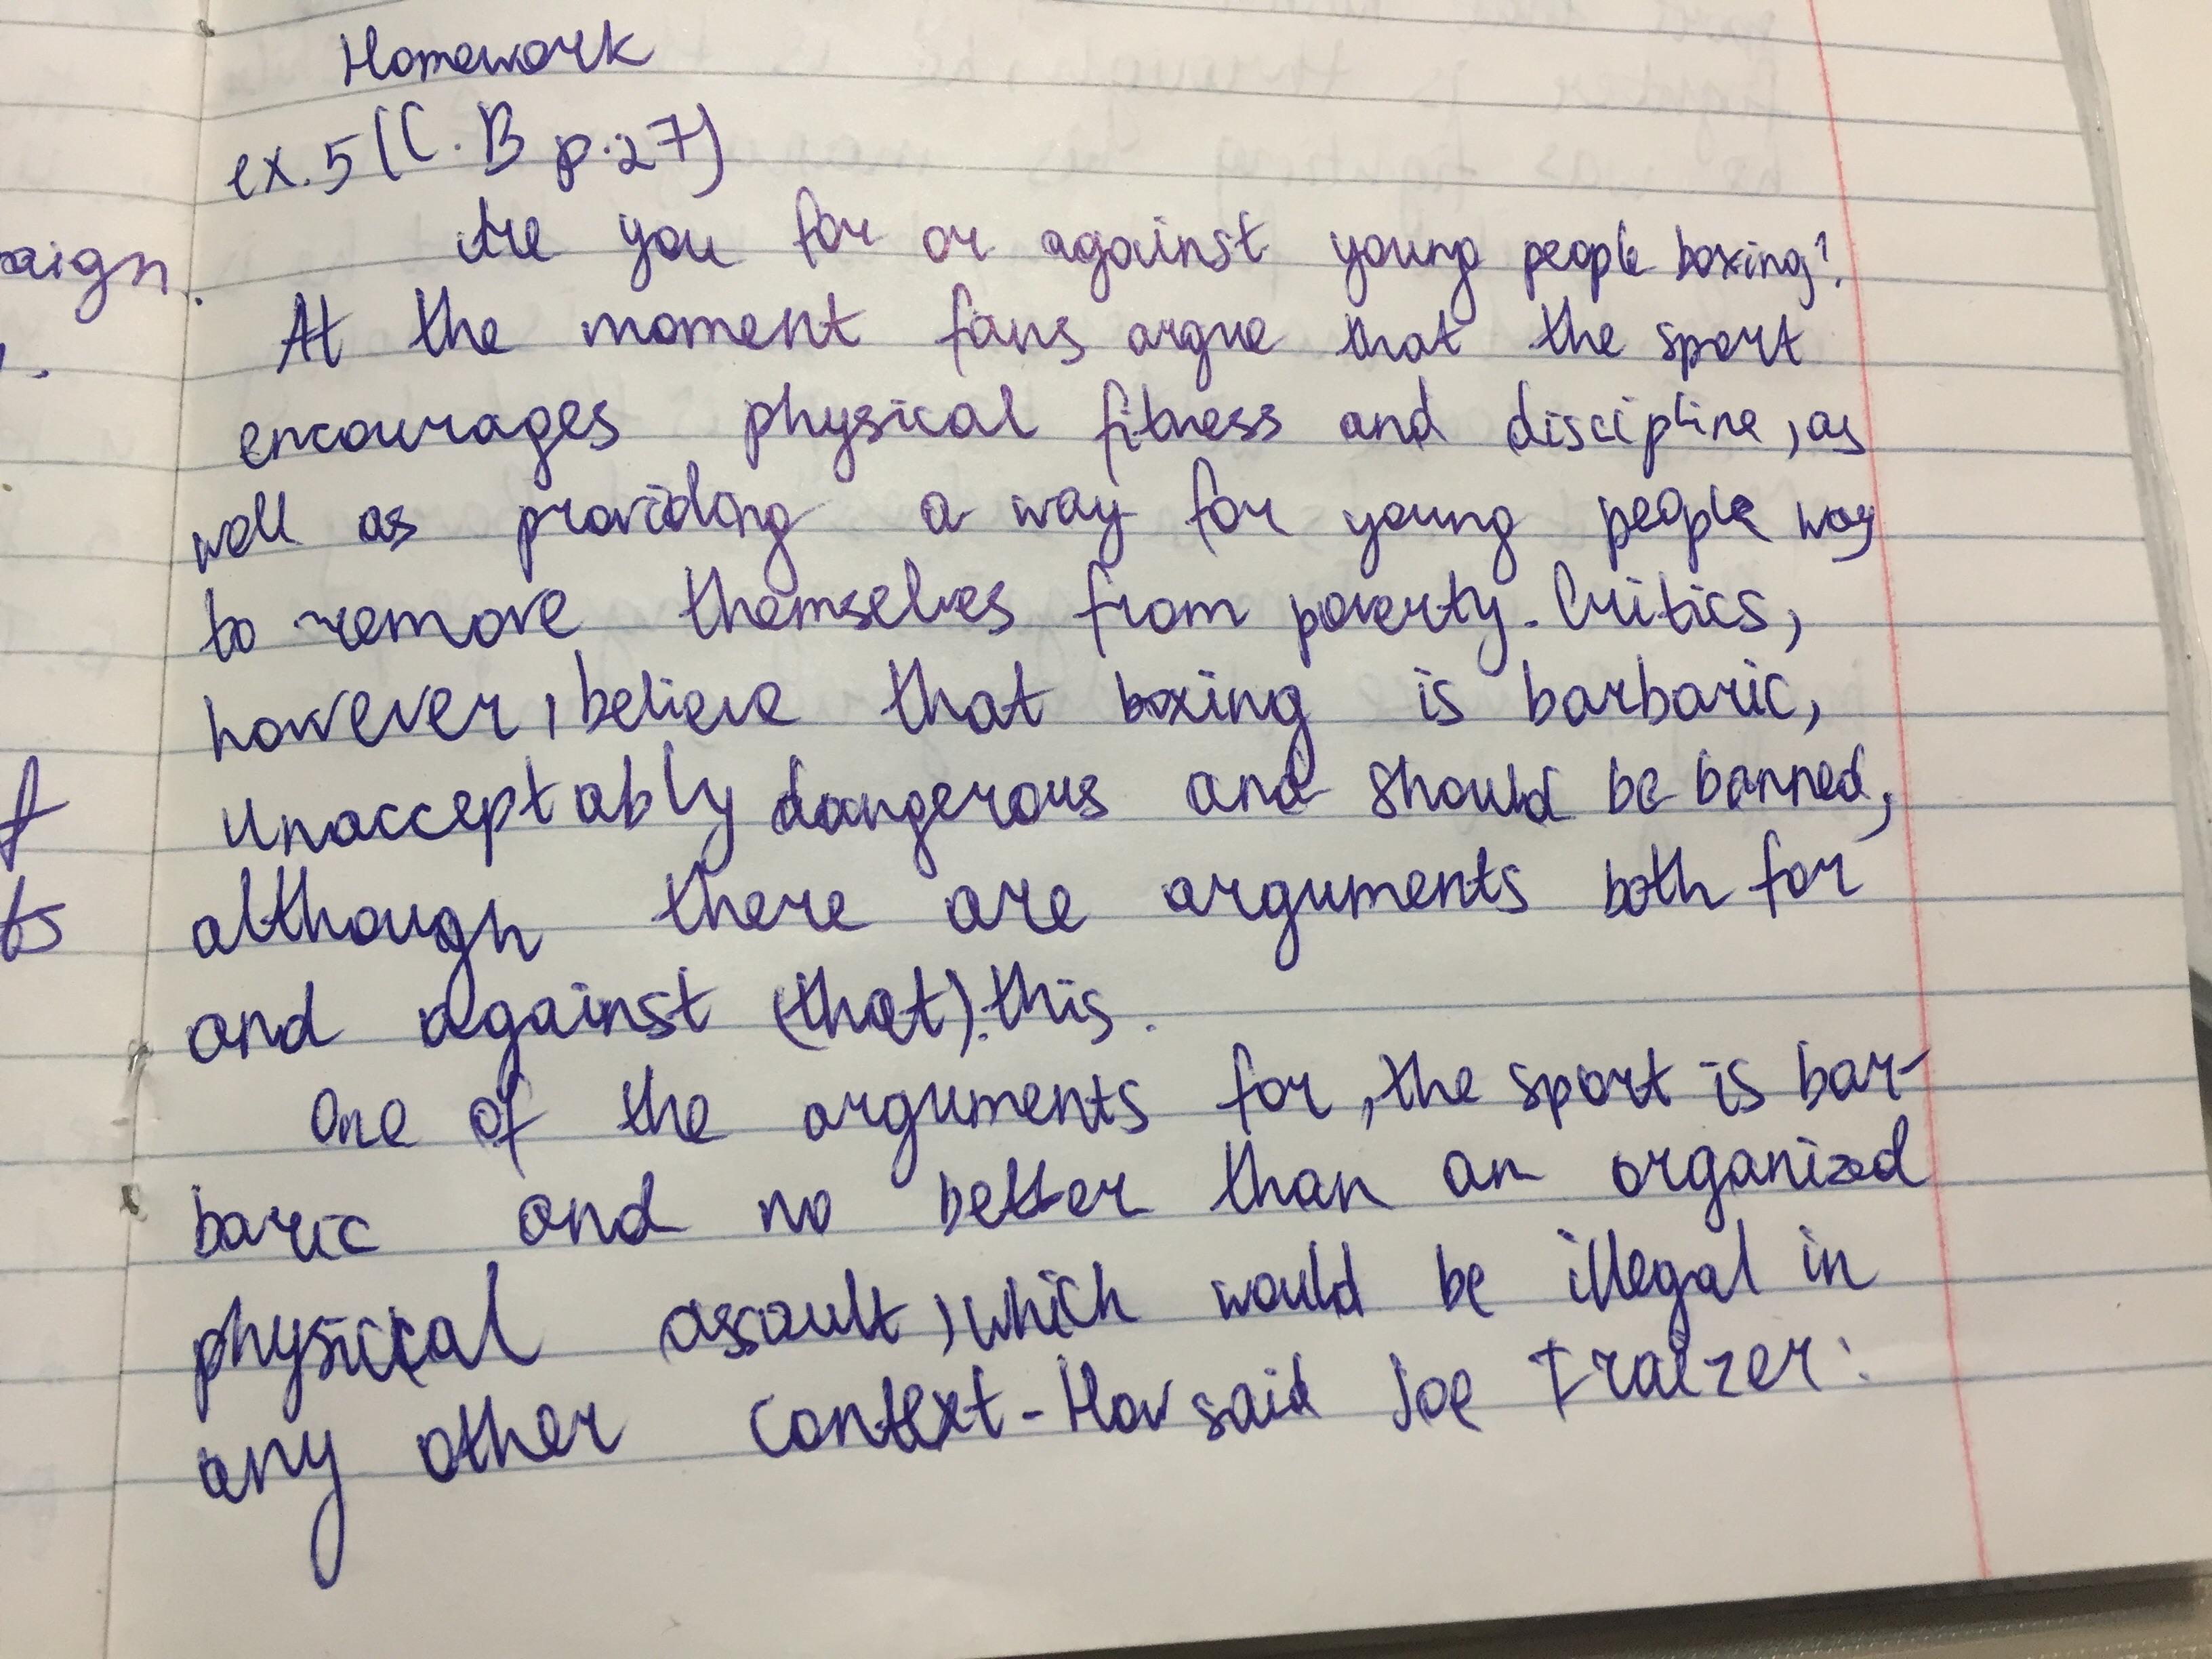 Homework
ex. 5 (C. B p. 27)
Are you for or against young people boxing?
At the moment fans argue that the sport
encourages physical fitness and discipline, as
well as providing a way for young people way
to remove themselves from poverty. Critics,
however, believe that boxing is barbaric,
unacceptably dangerous and should be banned,
although there are arguments both for
and against (that). this.
One of the arguments for, the sport is bar-
baric and no better than an organized
physical assault, which would be illegal in
any other context. How said Joe Fraizer:
aign.
f
ts